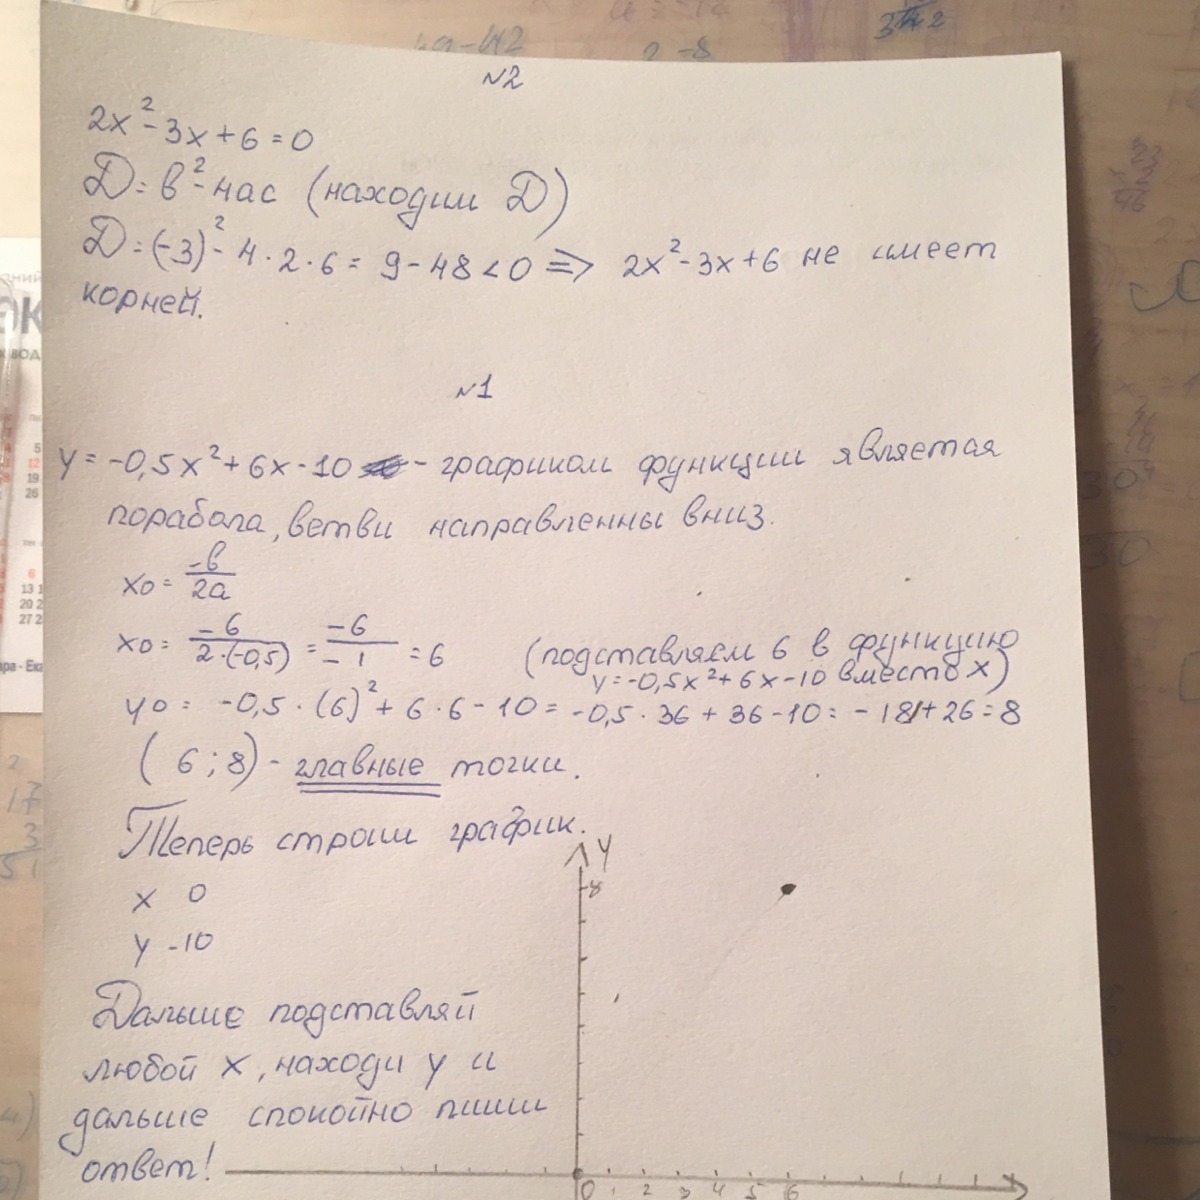 N2
2x² - 3x + 6 = 0
D = в² - 4ас (находим D)
D = (-3)² - 4 · 2 · 6 = 9 - 48 < 0 => 2x² - 3x + 6 не имеет
корней.
N1
y = -0,5x² + 6x - 10 - графиком функции является
порабола, ветви направленны вниз.
x0 = -в/2а
x0 = -6/2·(-0,5) = -6/-1 = 6 (подставляем 6 в функцию
y = -0,5x² + 6x - 10 вместо x)
y0 = -0,5 · (6)² + 6 · 6 - 10 = -0,5 · 36 + 36 - 10 = -18 + 26 = 8
(6 ; 8) - главные точки.
Теперь строим график.
y
8
x 0
y -10
Дальше подставляй
любой x, находи y и
дальше спокойно пиши
ответ!
0 1 2 3 4 5 6 x